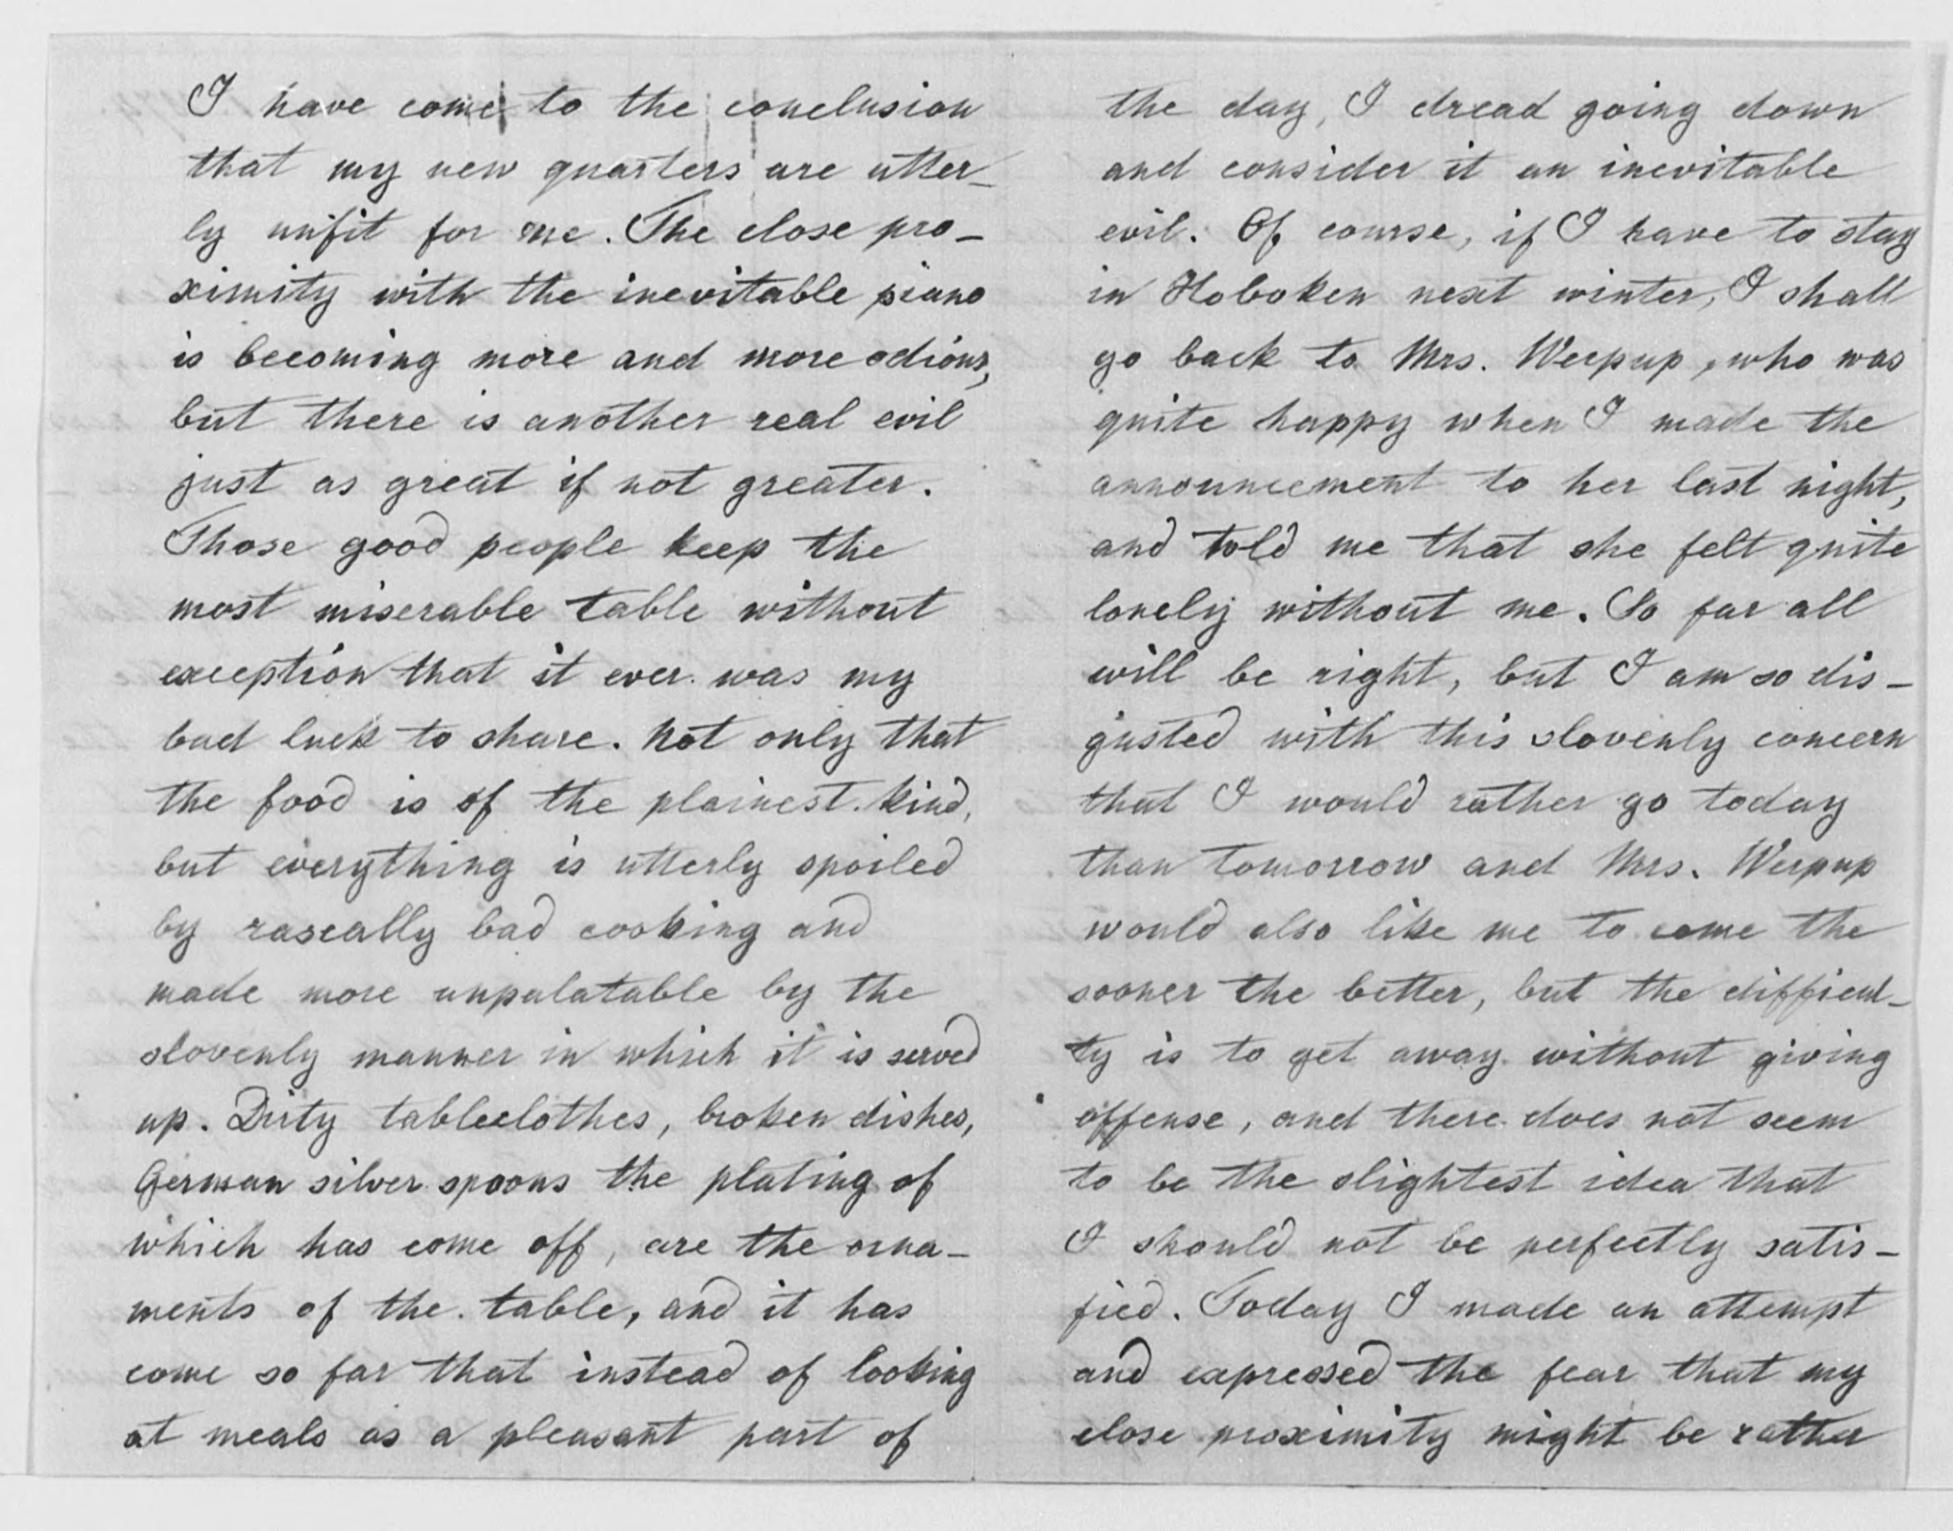 I have come to the conclusion
that my new quarters are utter-
ly unfit for me. The close pro-
ximity with the inevitable piano
is becoming more and more odious,
but there is another real evil
just as great if not greater.
Those good people keep the
most miserable table without
exception that it ever was my
bad luck to share. Not only that
the food is of the plainest kind,
but everything is utterly spoiled
by rascally bad cooking and
made more unpalatable by the
slovenly manner in which it is served
up. Dirty tableclothes, broken dishes,
German silver spoons the plating of
which has come off, are the orna-
ments of the table, and it has
come so far that instead of looking
at meals as a pleasant part of
the day, I dread going down
and consider it an inevitable
evil. Of course, if I have to stay
in Hoboken next winter, I shall
go back to Mrs. Werpup, who was
quite happy when I made the
announcement to her last night,
and told me that she felt quite
lonely without me. So far all
will be right, but I am so dis-
gusted with this slovenly concern
that I would rather go today
than tomorrow and Mrs. Werpup
would also like me to come the
sooner the better, but the difficul-
ty is to get away without giving
offense, and there does not seem
to be the slightest idea that
I should not be perfectly satis-
fied. Today I made an attempt
and expressed the fear that my
close proximity might be rather